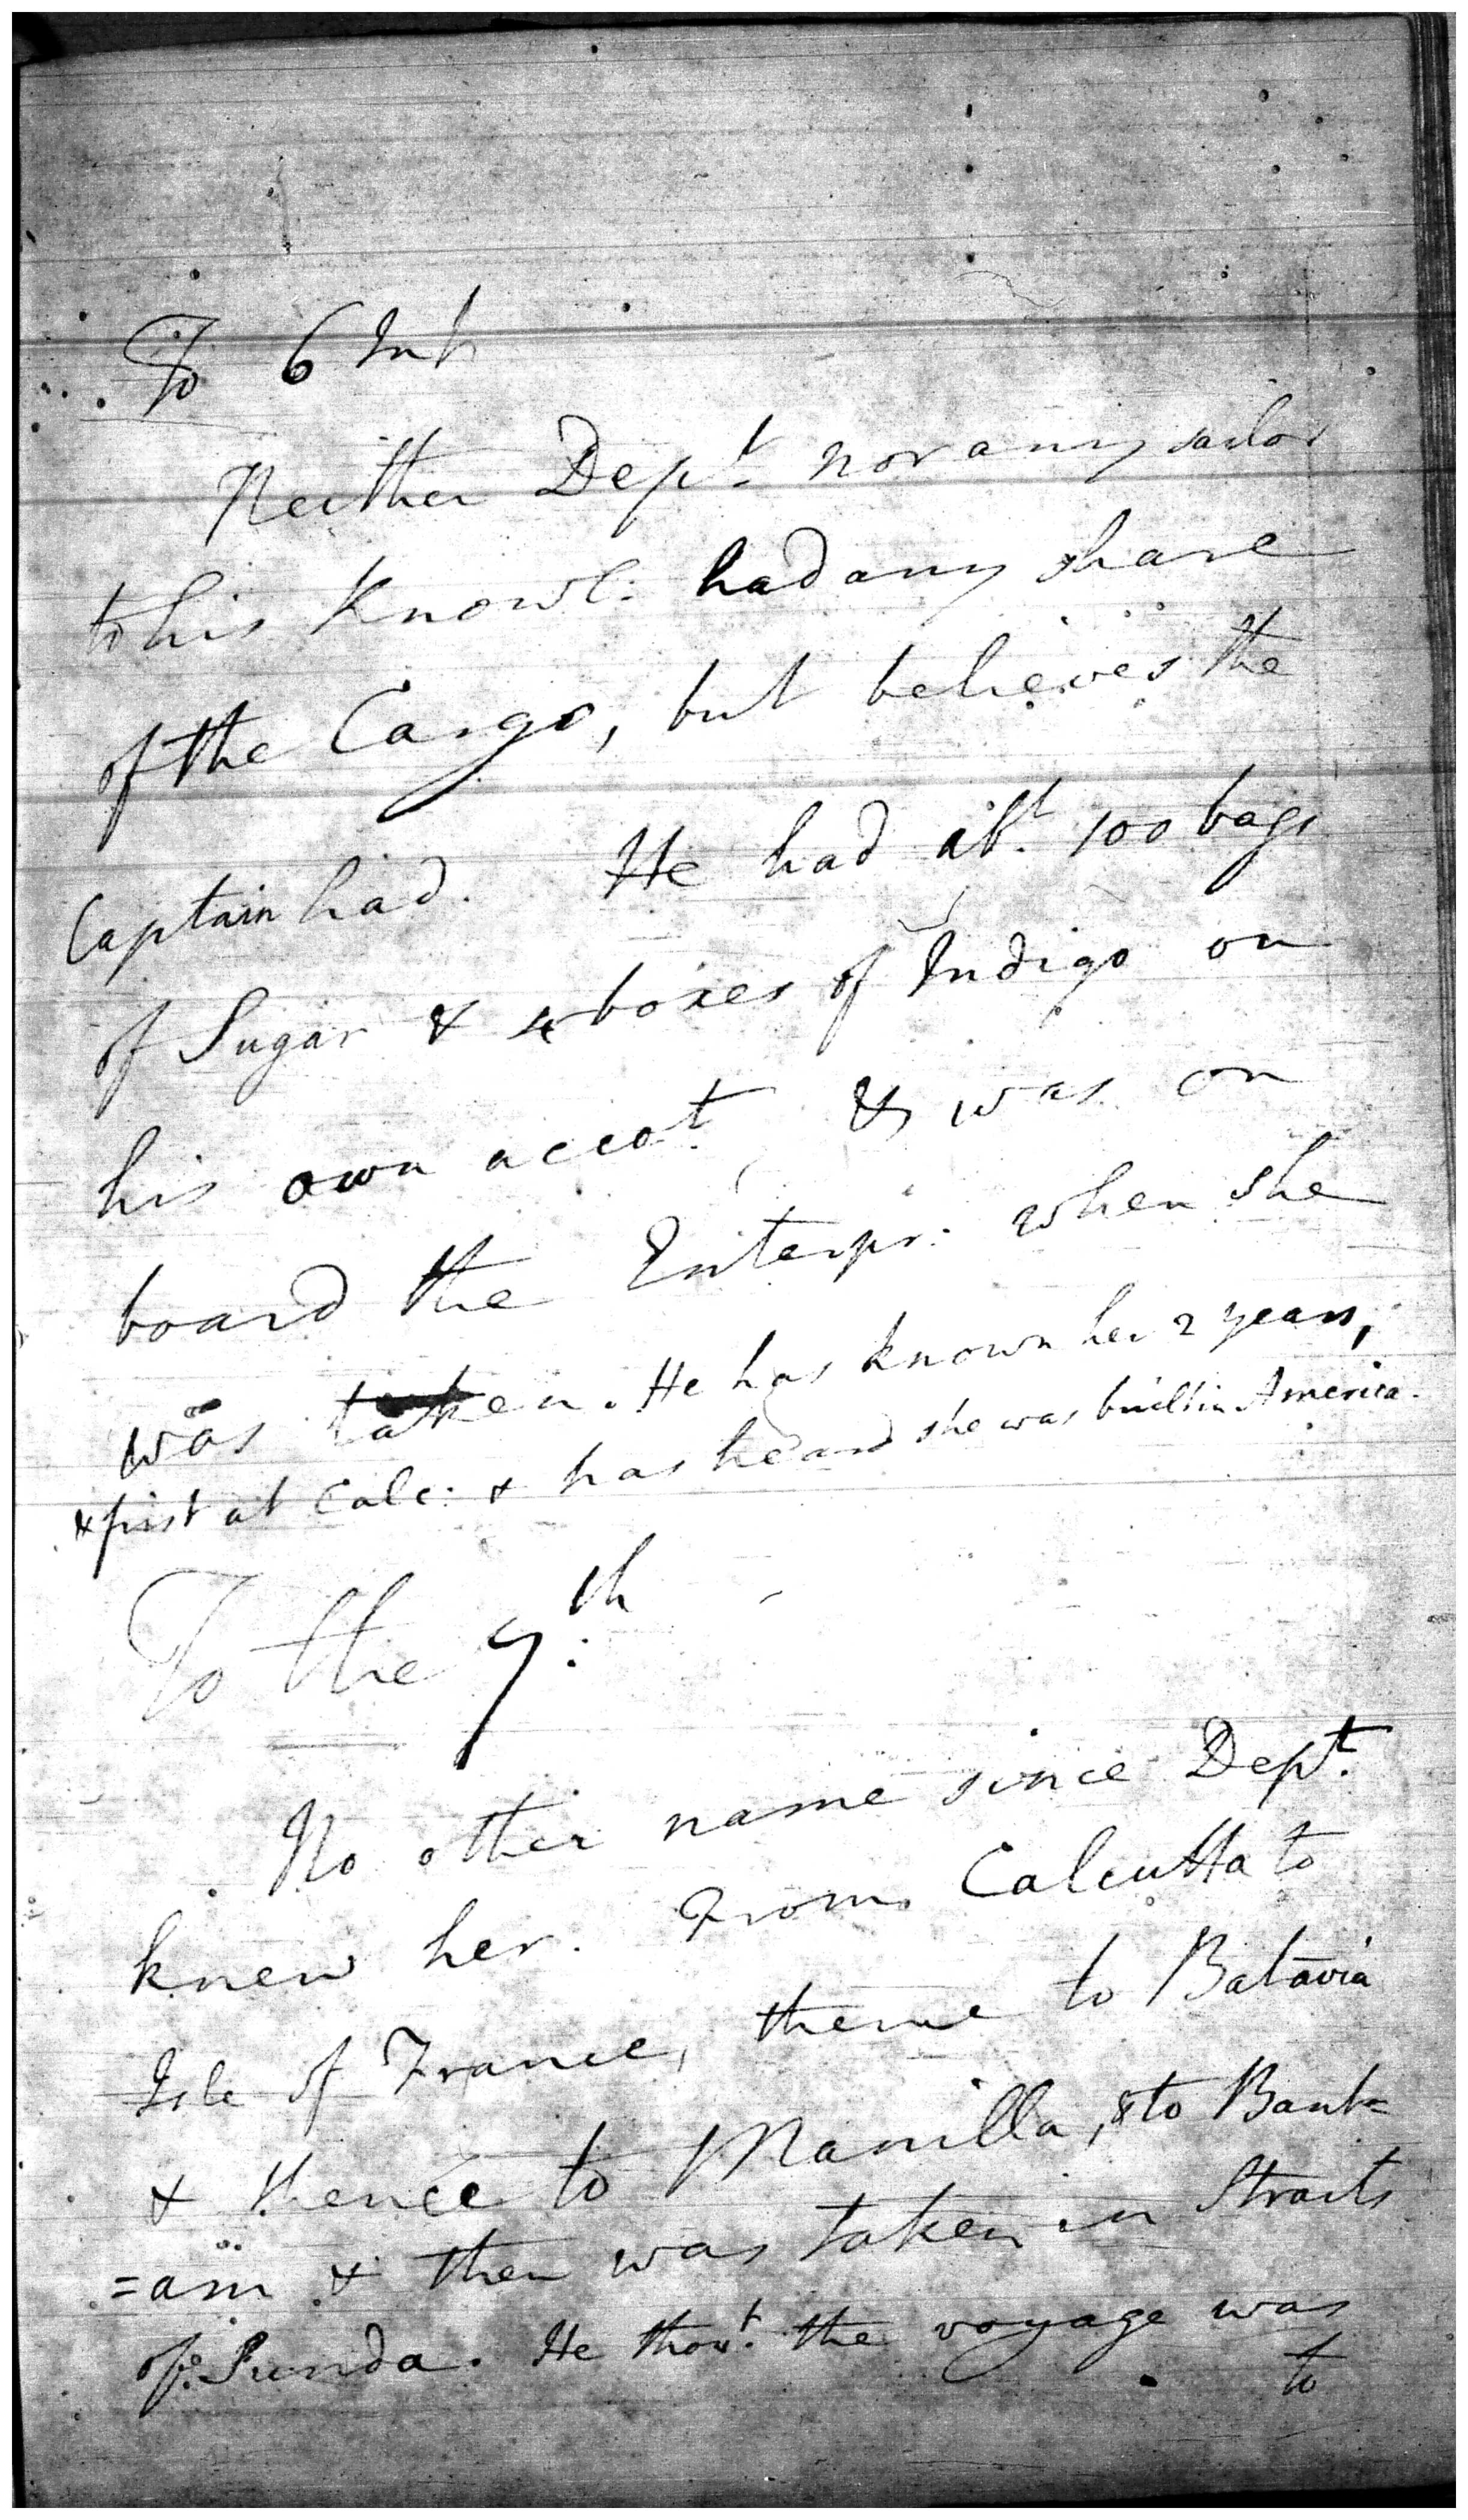 To 6 Int
Neither Dept. nor any sailor
to his Knowl: had any share
of the Cargo, but believes the
Captain had. He had abt. 100 bags
of Sugar & 4 boxes of Indigo on
his own accot. & was on
board the Enterpr: when she
was taken. He has known her 2 years,
& first at Calc: & has heard she was built in America.
To the 7:th
No other name since Dept.
knew her. From Calcutta to
Isle of France, thence to Batavia
& thence to Manilla, & to Bant=
=am & then was taken in Straits
of Sunda. He thowt. the voyage was
to